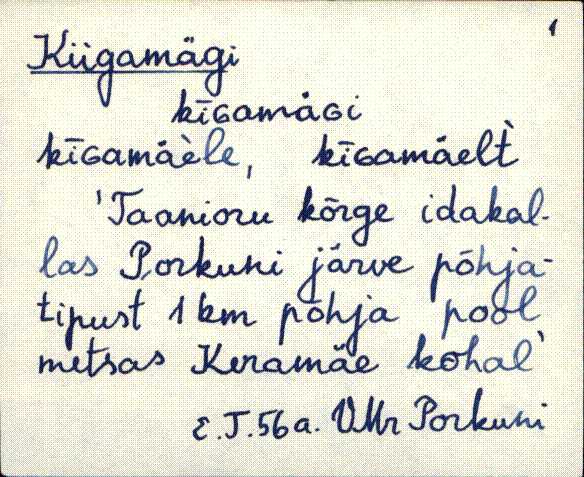 1
Kiigamägi
kīɢamäɢi
kīɢamäèle, kīɢamäelt̀
'Taanioru kõrge idakal-
las Porkuni järve põhja-
tipust 1 km põhja pool
metsas Keramäe kohal'
E.T. 56 a. VMr Porkuni